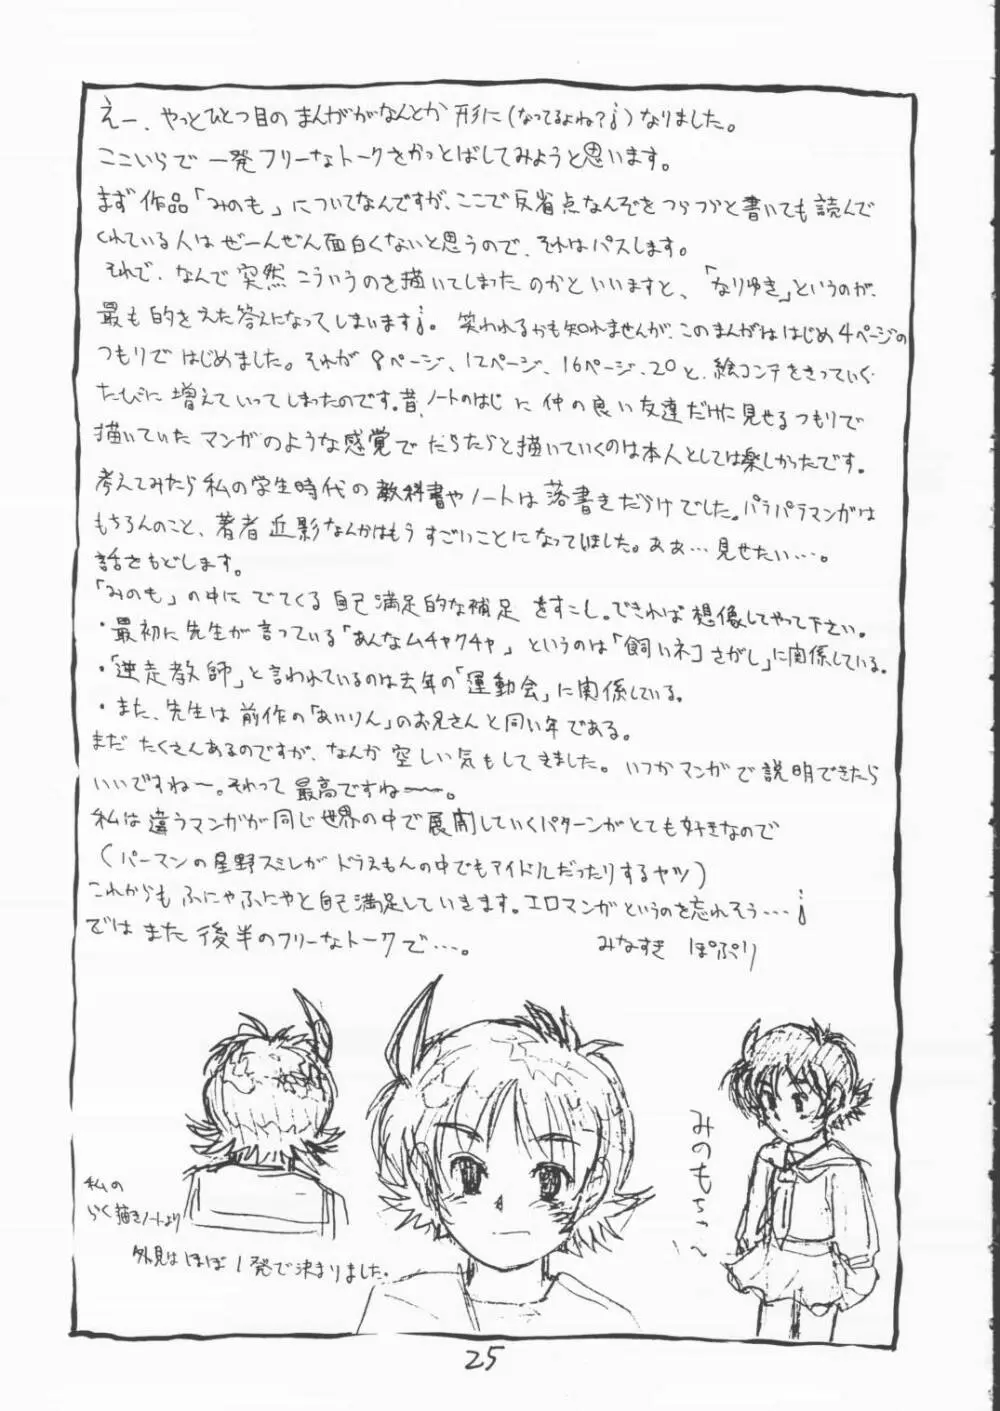 えー、やっとひとつ目のまんががなんとか形に(なってるよね?¡)なりました。
ここいらで一発フリーなトークをかっとばしてみようと思います。
まず作品「みのも」についてなんですが、ここで反省点なんぞをつらつかと書いても読んで
くれている人はぜーんぜん面白くないと思うので、それはパスします。
それで、なんで突然こういうのを描いてしまったのかといいますと、「なりゆき」というのが、
最も的をえた答えになってしまいます¡。笑われるかも知れませんが、このまんがははじめ4ページの
つもりではじめました。それが8ページ、12ページ、16ページ、20と、絵コンテをきっていく
たびに増えていってしまったのです。昔、ノートのはじに仲の良い友達だけに見せるつもりで
描いていたマンガのような感覚でだらたらと描いていくのは本人としては楽しかったです。
考えてみたら私の学生時代の教科書やノートは落書きだらけでした。パラパラマンガは
もちろんのこと、著者近影なんかはもうすごいことになってしました。ああ…見せたい…。
話をもどします。
「みのも」の中にでてくる自己満足的な補足をすこし。できれば想像してやって下さい。
・最初に先生が言っている「あんなムチャクチャ」というのは「飼いネコさがし」に関係している。
・「逆走教師」と言われているのは去年の「運動会」に関係している。
・また、先生は前作の「あいりん」のお兄さんと同い年である。
まだたくさんあるのですが、なんか空しい気もしてきました。いつかマンガで説明できたら
いいですねー。それって最高ですねー。
私は違うマンガが同じ世界の中で展開していくパターンがとても好きなので
(パーマンの星野スミレがドラえもんの中でもアイドルだったりするヤツ)
これからもふにゃふにゃと自己満足していきます。エロマンガというのを忘れそう…¡
ではまた後半のフリーなトークで…。
みなづき ぽぷり
みのもちゃん
私の
らく描きノートより
外見はほぼ1発で決まりました。
25